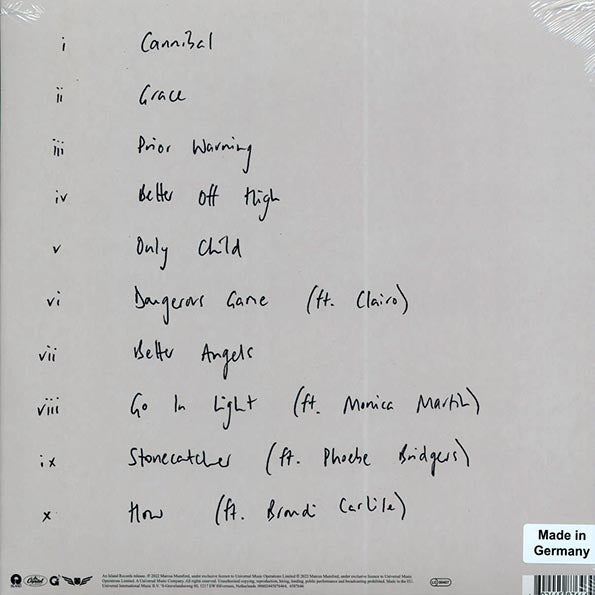 i Cannibal
ii Grace
iii Prior Warning
iv Better Off High
v Only Child
vi Dangerous Game (ft. Clairo)
vii Better Angels
viii Go In Light (ft. Monica Martin)
ix Stonecatcher (ft. Phoebe Bridgers)
x How (ft. Brandi Carlile)
Made in
Germany
An Island Records release. ℗ 2022 Marcus Mumford, under exclusive licence to Universal Music Operations Limited © 2022 Marcus Mumford, under exclusive licence to Universal Music
Operations Limited. A Universal Music Company. All rights reserved. Unauthorized copying, reproduction, hiring, lending, public performance and broadcasting prohibited. Made in the EU.